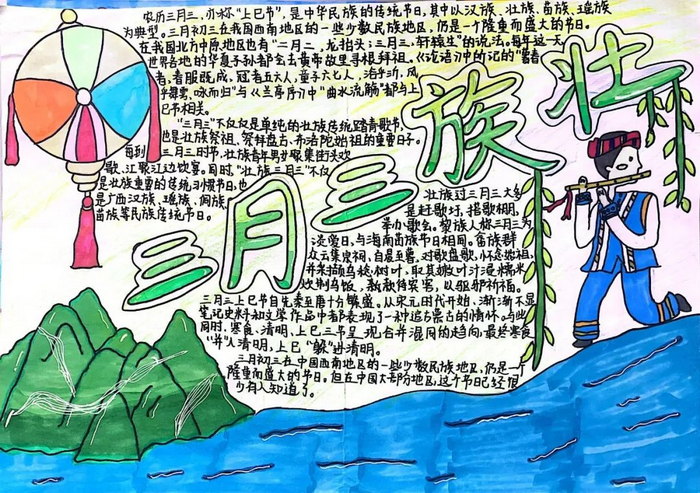 壮族三月三
农历三月三，亦称“上巳节”，是中华民族的传统节日，其中以汉族、壮族、苗族、瑶族
为典型。三月初三在我国西南地区的一些少数民族地区，仍是一个隆重而盛大的节日。
在我国北方中原地区也有“二月二，龙抬头；三月三，轩辕生”的说法。每年这一天
世界各地的华夏子孙都会去黄帝故里寻根拜祖。《论语》中所记的“暮春
者，春服既成，冠者五六人，童子六七人，浴乎沂，风
乎舞雩，咏而归”与《兰亭序》中“曲水流觞”都与上
巳节相关。
“三月三”不仅仅是单纯的壮族传统踏青歌节，
也是壮族祭祖、祭拜盘古、布洛陀始祖的重要日子。
每到三月三时节，壮族青年男女聚集街头欢
歌、汇聚江边饮宴。同时，“壮族三月三”不仅
是壮族重要的传统习惯节日，也
是广西汉族、瑶族、侗族
苗族等民族传统节日。
壮族过三月三大多
是赶歌圩，搭歌棚，
举办歌会。黎族人称三月三为
谈爱日，与海南苗族节日相同。畲族群
众云集宗祠，自晨至暮，对歌盘歌，怀念始祖，
并采撷乌稔树叶，取其嫩叶汁浸糯米
炊制乌饭，款待宾客，以驱邪祈福。
三月三上巳节自先秦至唐十分繁盛。从宋元时代开始，渐渐不显
笔记史料和文学作品中者都表现了一种追古慕古的情怀。与此
同时，寒食、清明、上巳三节呈现合并混同的趋向，最终寒食
“并”入清明，上巳“躲”进清明。
三月初三在中国西南地区的一些少数民族地区，仍是一个
隆重而盛大的节日。但在中国大部分地区，这个节日已经很
少有人知道了。